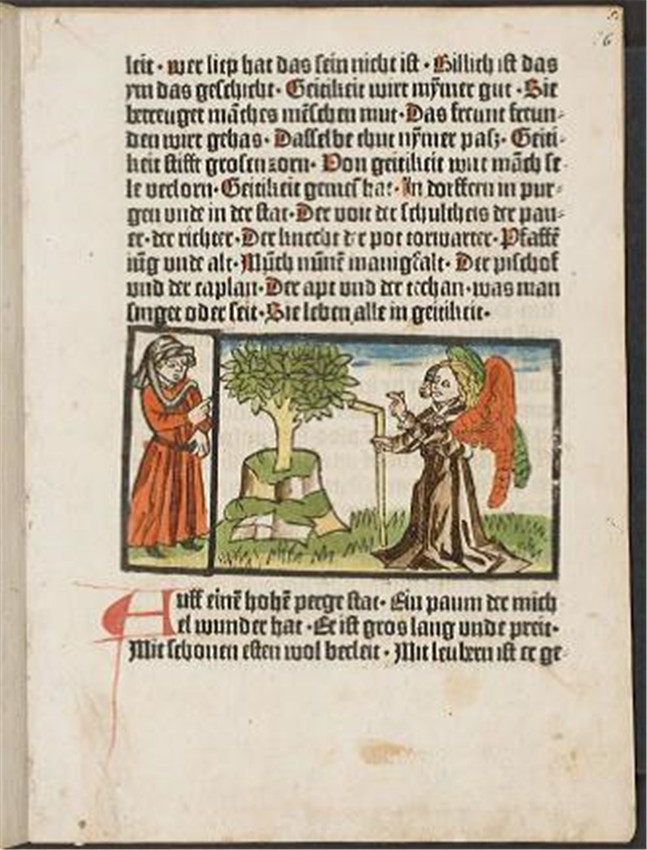 leit · wer liep hat das sein nicht ist · Billich ist das
ym das geschicht · Geitikeit wirt nȳmer gut · Sie
betreuget māches mēschen mut · Das freunt freun⸗
den wirt gehas · Dasselbe thut nȳmer pasz · Geiti⸗
keit stifft grosen zorn · Von geitikeit wirt māch se⸗
le verlorn · Geitikeit hat · In dorffern in pur⸗
gen vnde in der stat · Der voit der schultheis der pau⸗
er · der richter · Der knecht der pot torwarter · Pfaffē
iūg vnde alt · Mūch nūnē manigfalt · Der pischof
vnd der caplan · Der apt vnd der techan · was man
singet oder seit · Sie leben alle in geitikeit ·
Auff einē hohē perge stat · Ein paum der mich
el wunder hat · Er ist gros lang vnde preit ·
Mit schonen esten wol becleit · Mit leubern ist er ge